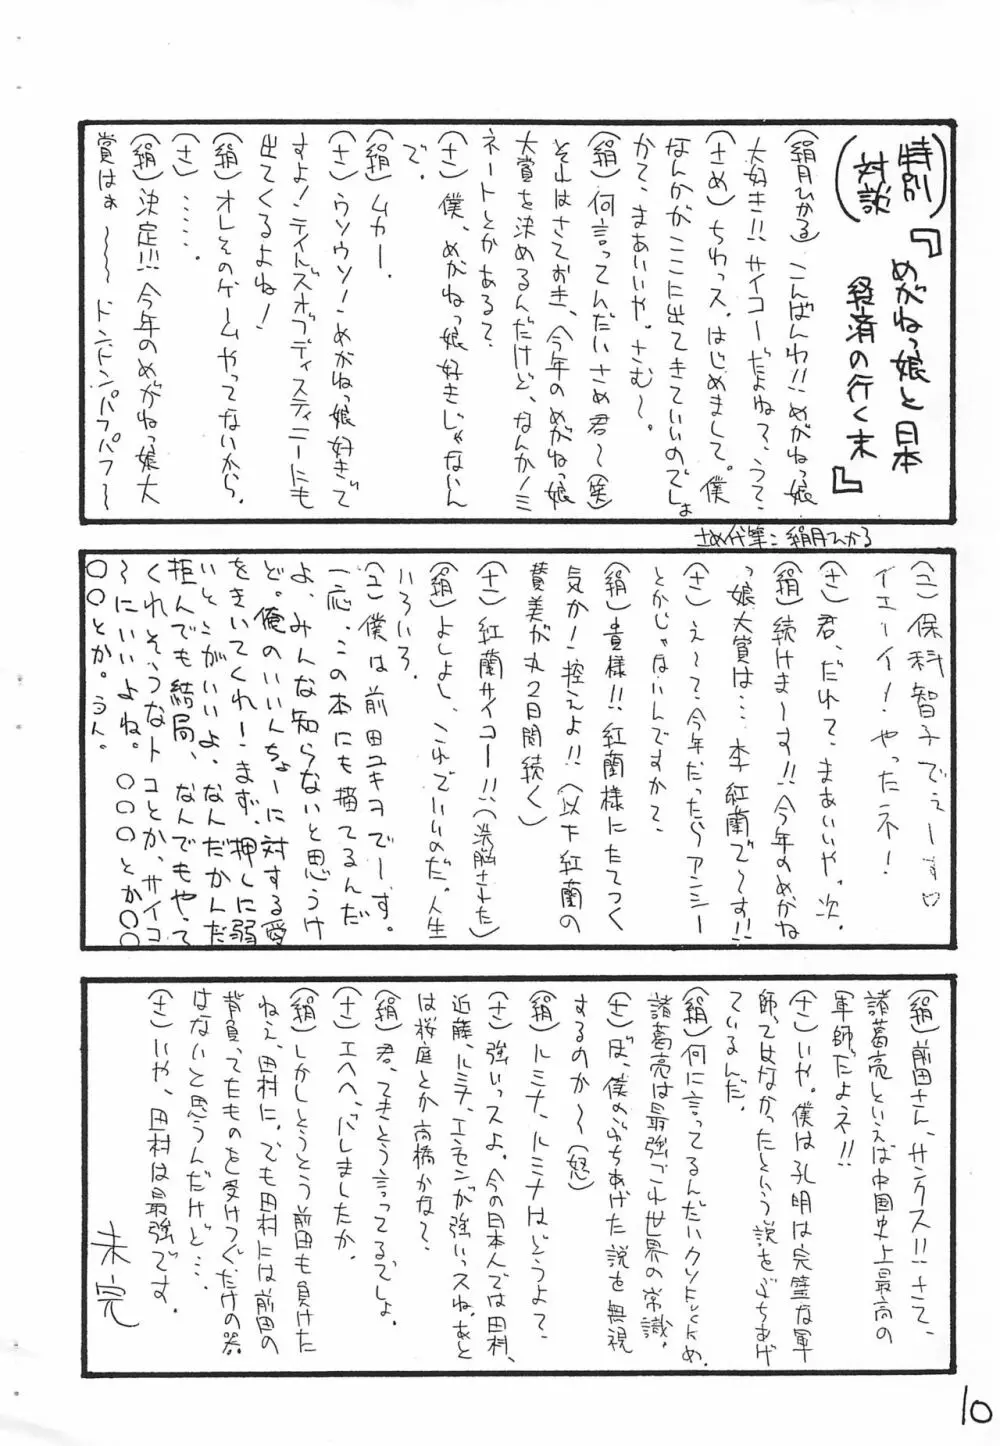 特別
(対談)
『めがねっ娘と日本
経済の行く末』
(絹月ひかる) こんばんわ!!めがねっ娘
大好き!!サイコーだよねって、うって、
(さめ) ちわっス。はじめまして。僕
なんかがここに出てきていいのでしょ
かて、まあいいや。さむ〜。
(絹) 何言ってんだい さめ君〜(笑)
それはさておき、今年のめがねっ娘
大賞を決めるんだけど、なんかノミ
ネートとかある?
(さ) 僕、めがねっ娘好きじゃないん
で。
(絹) ムカー.
(さ) ウソウソ!めがねっ娘好きで
すよ!テイルズオブディスティニーにも
出てくるよね!
(絹) オレそのゲームやってないから.
(さ)‥‥‥.
(絹) 決定!!!今年のめがねっ娘大
賞はぁ 〜〜〜 ドンドンパフパフ〜
さめ代筆:絹月ひかる
(ユ) 保科智子でぇーす♡
イェーイ!やったネ!
(さ) 君、だれて、まあいいや。次.
(絹) 続けま〜す!!今年のめがね
っ娘大賞は‥‥李紅蘭で〜す!!
(さ) え〜て、今年だったらアンシー
とかじゃないんですかて、
(絹) 貴様!!紅蘭様にたてつく
気かー控えよ!!(以下紅蘭の
賛美が丸2日間続く)
(さ) 紅蘭サイコー!!(洗脳された)
(絹) よしよし、これでいいのだ。人生
いろいろ.
(ユ) 僕は前田ユキヲでーす。
一応、この本にも描てるんだ
よ、みんな知らないと思うけ
ど。俺のいいんちょーに対する愛
をきいてくれー!まず、押しに弱
いとこがいいよ、なんだかんだ
拒んでも結局、なんでもやって
くれそうなトコとか、サイコ
〜にいいよね。〇〇〇とか〇〇
〇〇とか。うん。
(絹) 前田さん、サンクス!!さて、
諸葛亮といえば中国史上最高の
軍師だよネ!!
(さ) いや。僕は孔明は完璧な軍
師ってはなかったという説をぶちあげ
ているんだ.
(絹) 何に言ってるんだいクソFuckめ.
諸葛亮は最強ごれ世界の常識.
(さ) ぼ、僕のぶちあげた説を無視
するのか〜(怒)
(絹) ルミナ、ルミナはどうよて、
(さ) 強いっスよ。今の日本人では田村、
近藤、ルミナ、エンセンが強いっスね。あと
は桜庭とか高橋かなて、
(絹) 君、てきとう言ってるでしょ.
(さ) エヘヘ、バレましたか.
(絹) しかしとうとう前田も負けた
ねえ、田村に。でも田村には前田の
背負ってたものを受けつぐだけの器
はないと思うんだけど‥‥
(さ) いや、田村は最強です。
未完
10